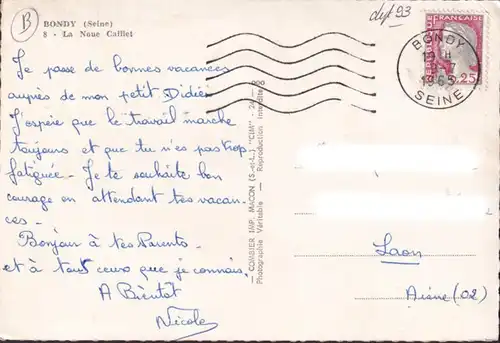 B
BONDY (Seine)
8 - La Noue Caillet
dept 93
Je passe de bonnes vacances
auprès de mon petit Didier
J'espère que le travail marche
toujours et que tu n'es pas trop
fatiguée - Je te souhaite bon
courage en attendant tes vacan-
ces -
Bonjour à tes Parents -
et à tous ceux que je connais.
A Bientôt
Nicole
COMBIER IMP. MACON (S.-et-L.) "CIM"
Photographie Véritable - Reproduction Interdite
BONDY
SEINE
FRANÇAISE
0.25
Laon
Aisne (02)